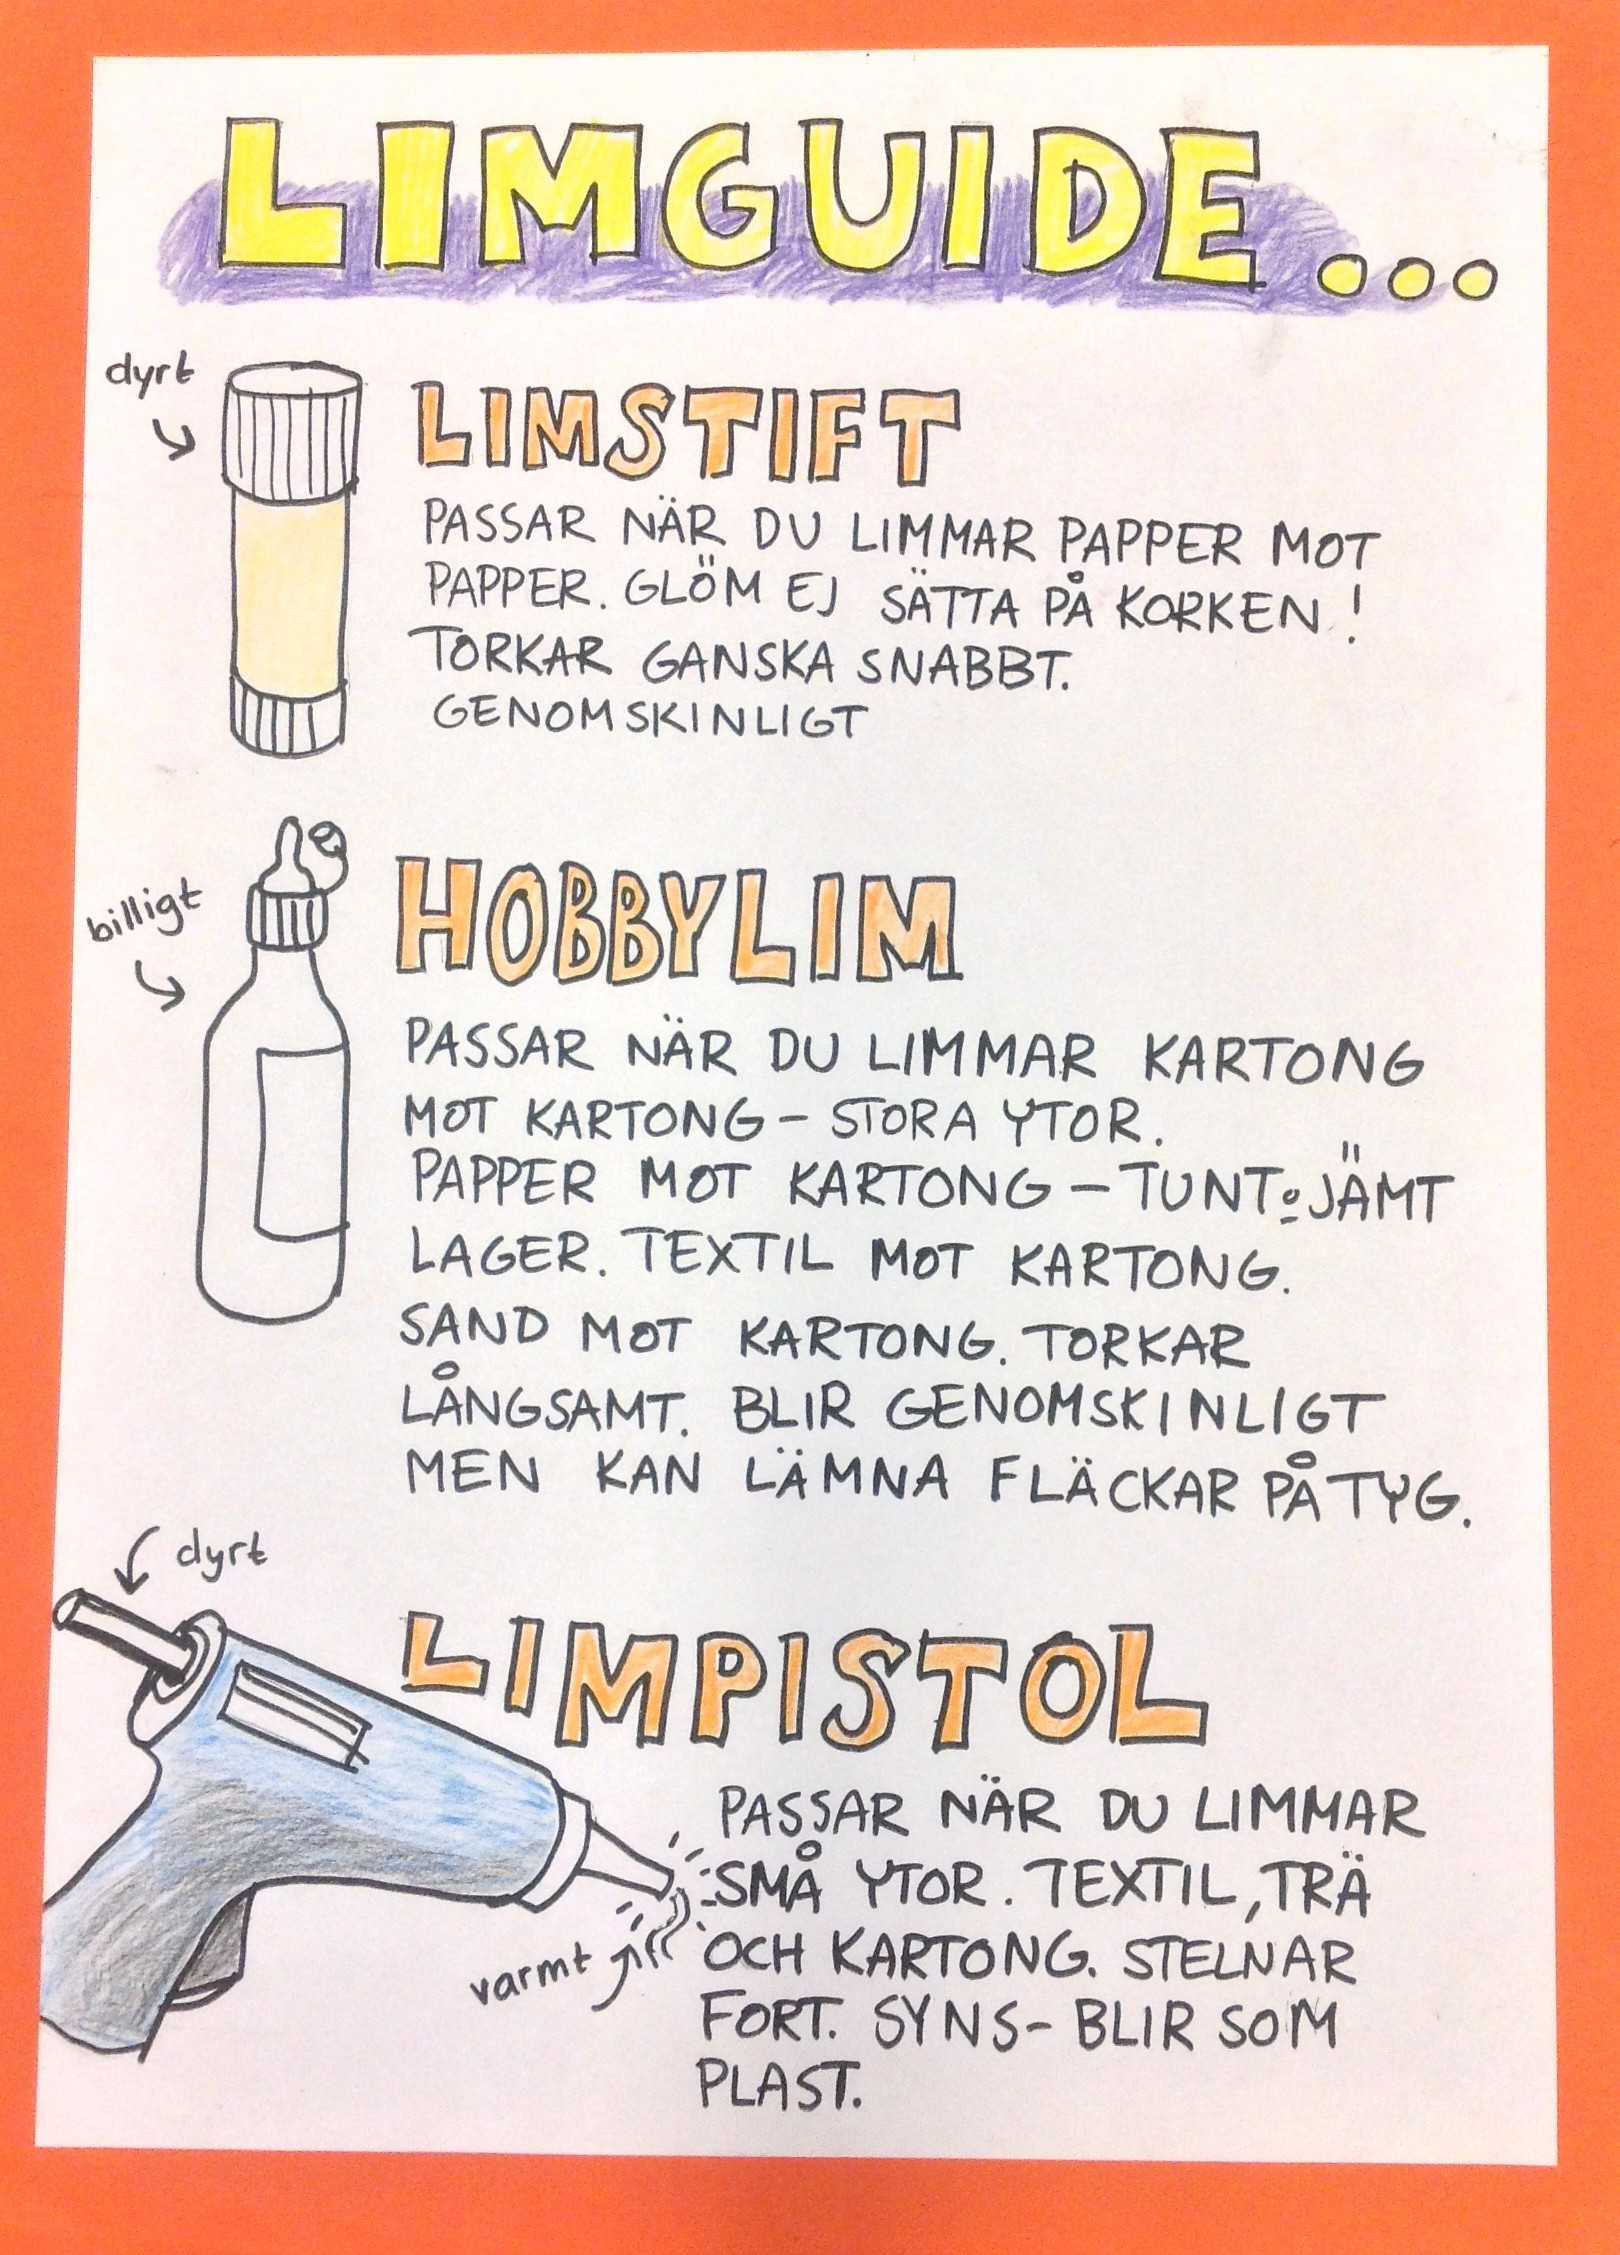 LIMGUIDE...
dyrt
LIMSTIFT
PASSAR NÄR DU LIMMAR PAPPER MOT
PAPPER. GLÖM EJ SÄTTA PÅ KORKEN!
TORKAR GANSKA SNABBT.
GENOMSKINLIGT
billigt
HOBBYLIM
PASSAR NÄR DU LIMMAR KARTONG
MOT KARTONG - STORA YTOR.
PAPPER MOT KARTONG - TUNT º JÄMT
LAGER. TEXTIL MOT KARTONG.
SAND MOT KARTONG. TORKAR
LÅNGSAMT. BLIR GENOMSKINLIGT
MEN KAN LÄMNA FLÄCKAR PÅ TYG.
dyrt
LIMPISTOL
PASSAR NÄR DU LIMMAR
SMÅ YTOR. TEXTIL, TRÄ
OCH KARTONG. STELNAR
FORT. SYNS - BLIR SOM
PLAST.
varmt